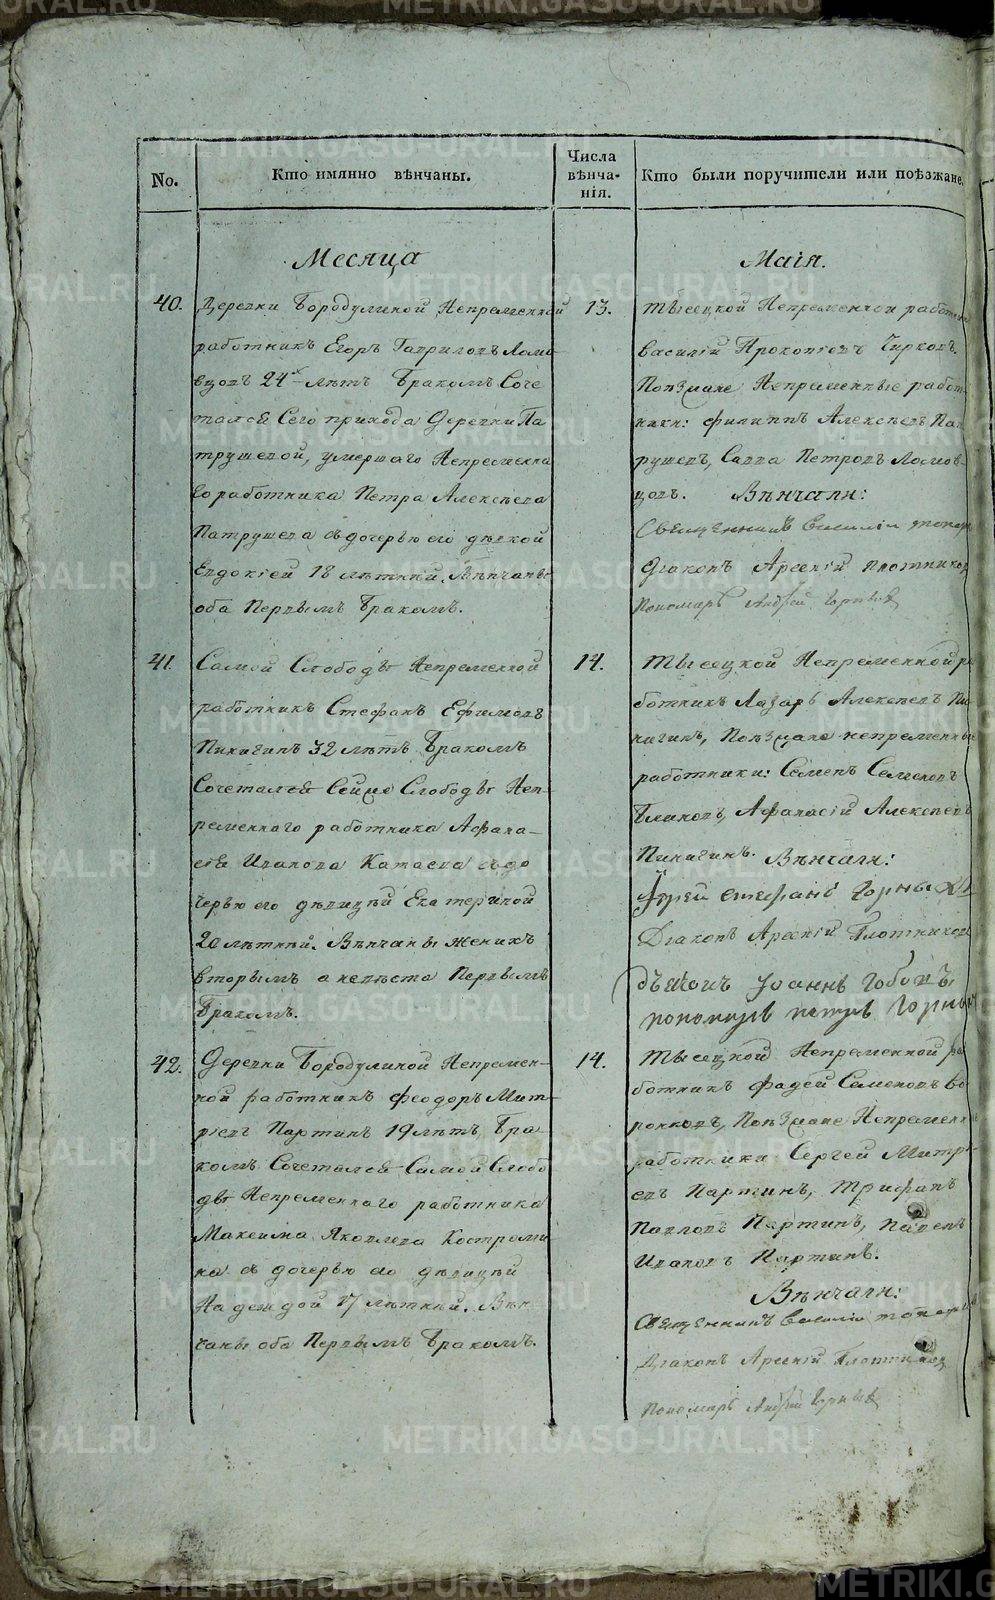 No.
Кто имянно вѣнчаны.
Числа
вѣнча-
нія.
Кто были поручители или поѣзжане.
Месяца
Маія.
40.
Деревни Бородулиной Непременной
работникъ Егоръ Гавриловъ Ломо-
вцовъ 24 лѣтъ Бракомъ Соче
тался Сего прихода Деревни Па
трушевой, умершаго Непременна
го работника Петра Алексѣева
Патрушева съ дочерью его дѣвкой
Евдокіей 18 лѣтней. Вѣнчаны
оба Первымъ Бракомъ.
13.
Тысецкой Непременной работникъ
Василій Прокопіевъ Чирковъ.
Поѣзжане Непременные работ-
ники: Филиппъ Алексѣевъ Пат
рушевъ, Савва Петровъ Ломов-
цовъ. Вѣнчали:
Священникъ Василій
Діаконъ Арсеній Плотников
Пономарь Андрей Горных
41.
Самой Слободы Непременной
работникъ Стефанъ Ефимовъ
Пинигинъ 32 лѣтъ Бракомъ
Сочетался Сей же Слободы Неп-
ременнаго работника Афана-
сія Иванова Катаева съ до
черью его дѣвицей Екатериной
20 лѣтней. Вѣнчаны женихъ
вторымъ а невѣста Первымъ
Бракомъ.
14.
Тысецкой Непременной ра
ботникъ Лазарь Алексѣевъ Пи
нигинъ, Поѣзжане непременные
работники: Семенъ Семеновъ
Блиновъ, Афанасій Алексѣевъ
Пинигинъ. Вѣнчали:
Іерей Стефанъ Горных
Діаконъ Арсеній Плотников
дьячокъ Іоаннъ
пономарь Петръ Горных
42.
Деревни Бородулиной Непремен-
ной работникъ Феодоръ Мит-
ріевъ Партинъ 19 лѣтъ Бра
комъ Сочетался Самой Слобо
ды Непременнаго работника
Максима Яковлева Костроми
на съ дочерью его дѣвицей
Надеждой 17 лѣтней. Вѣн-
чаны оба Первымъ Бракомъ.
14.
Тысецкой Непременной ра
ботникъ Фадей Семеновъ Во
ронковъ, Поѣзжане Непременные
работники Сергей Митрі-
евъ Партинъ, Трифанъ
Павловъ Партинъ, Павелъ
Ивановъ Партинъ.
Вѣнчали:
Священникъ Василій
Діаконъ Арсеній Плотников
Пономарь Андрей Горных
METRIKI.GASO-URAL.RU